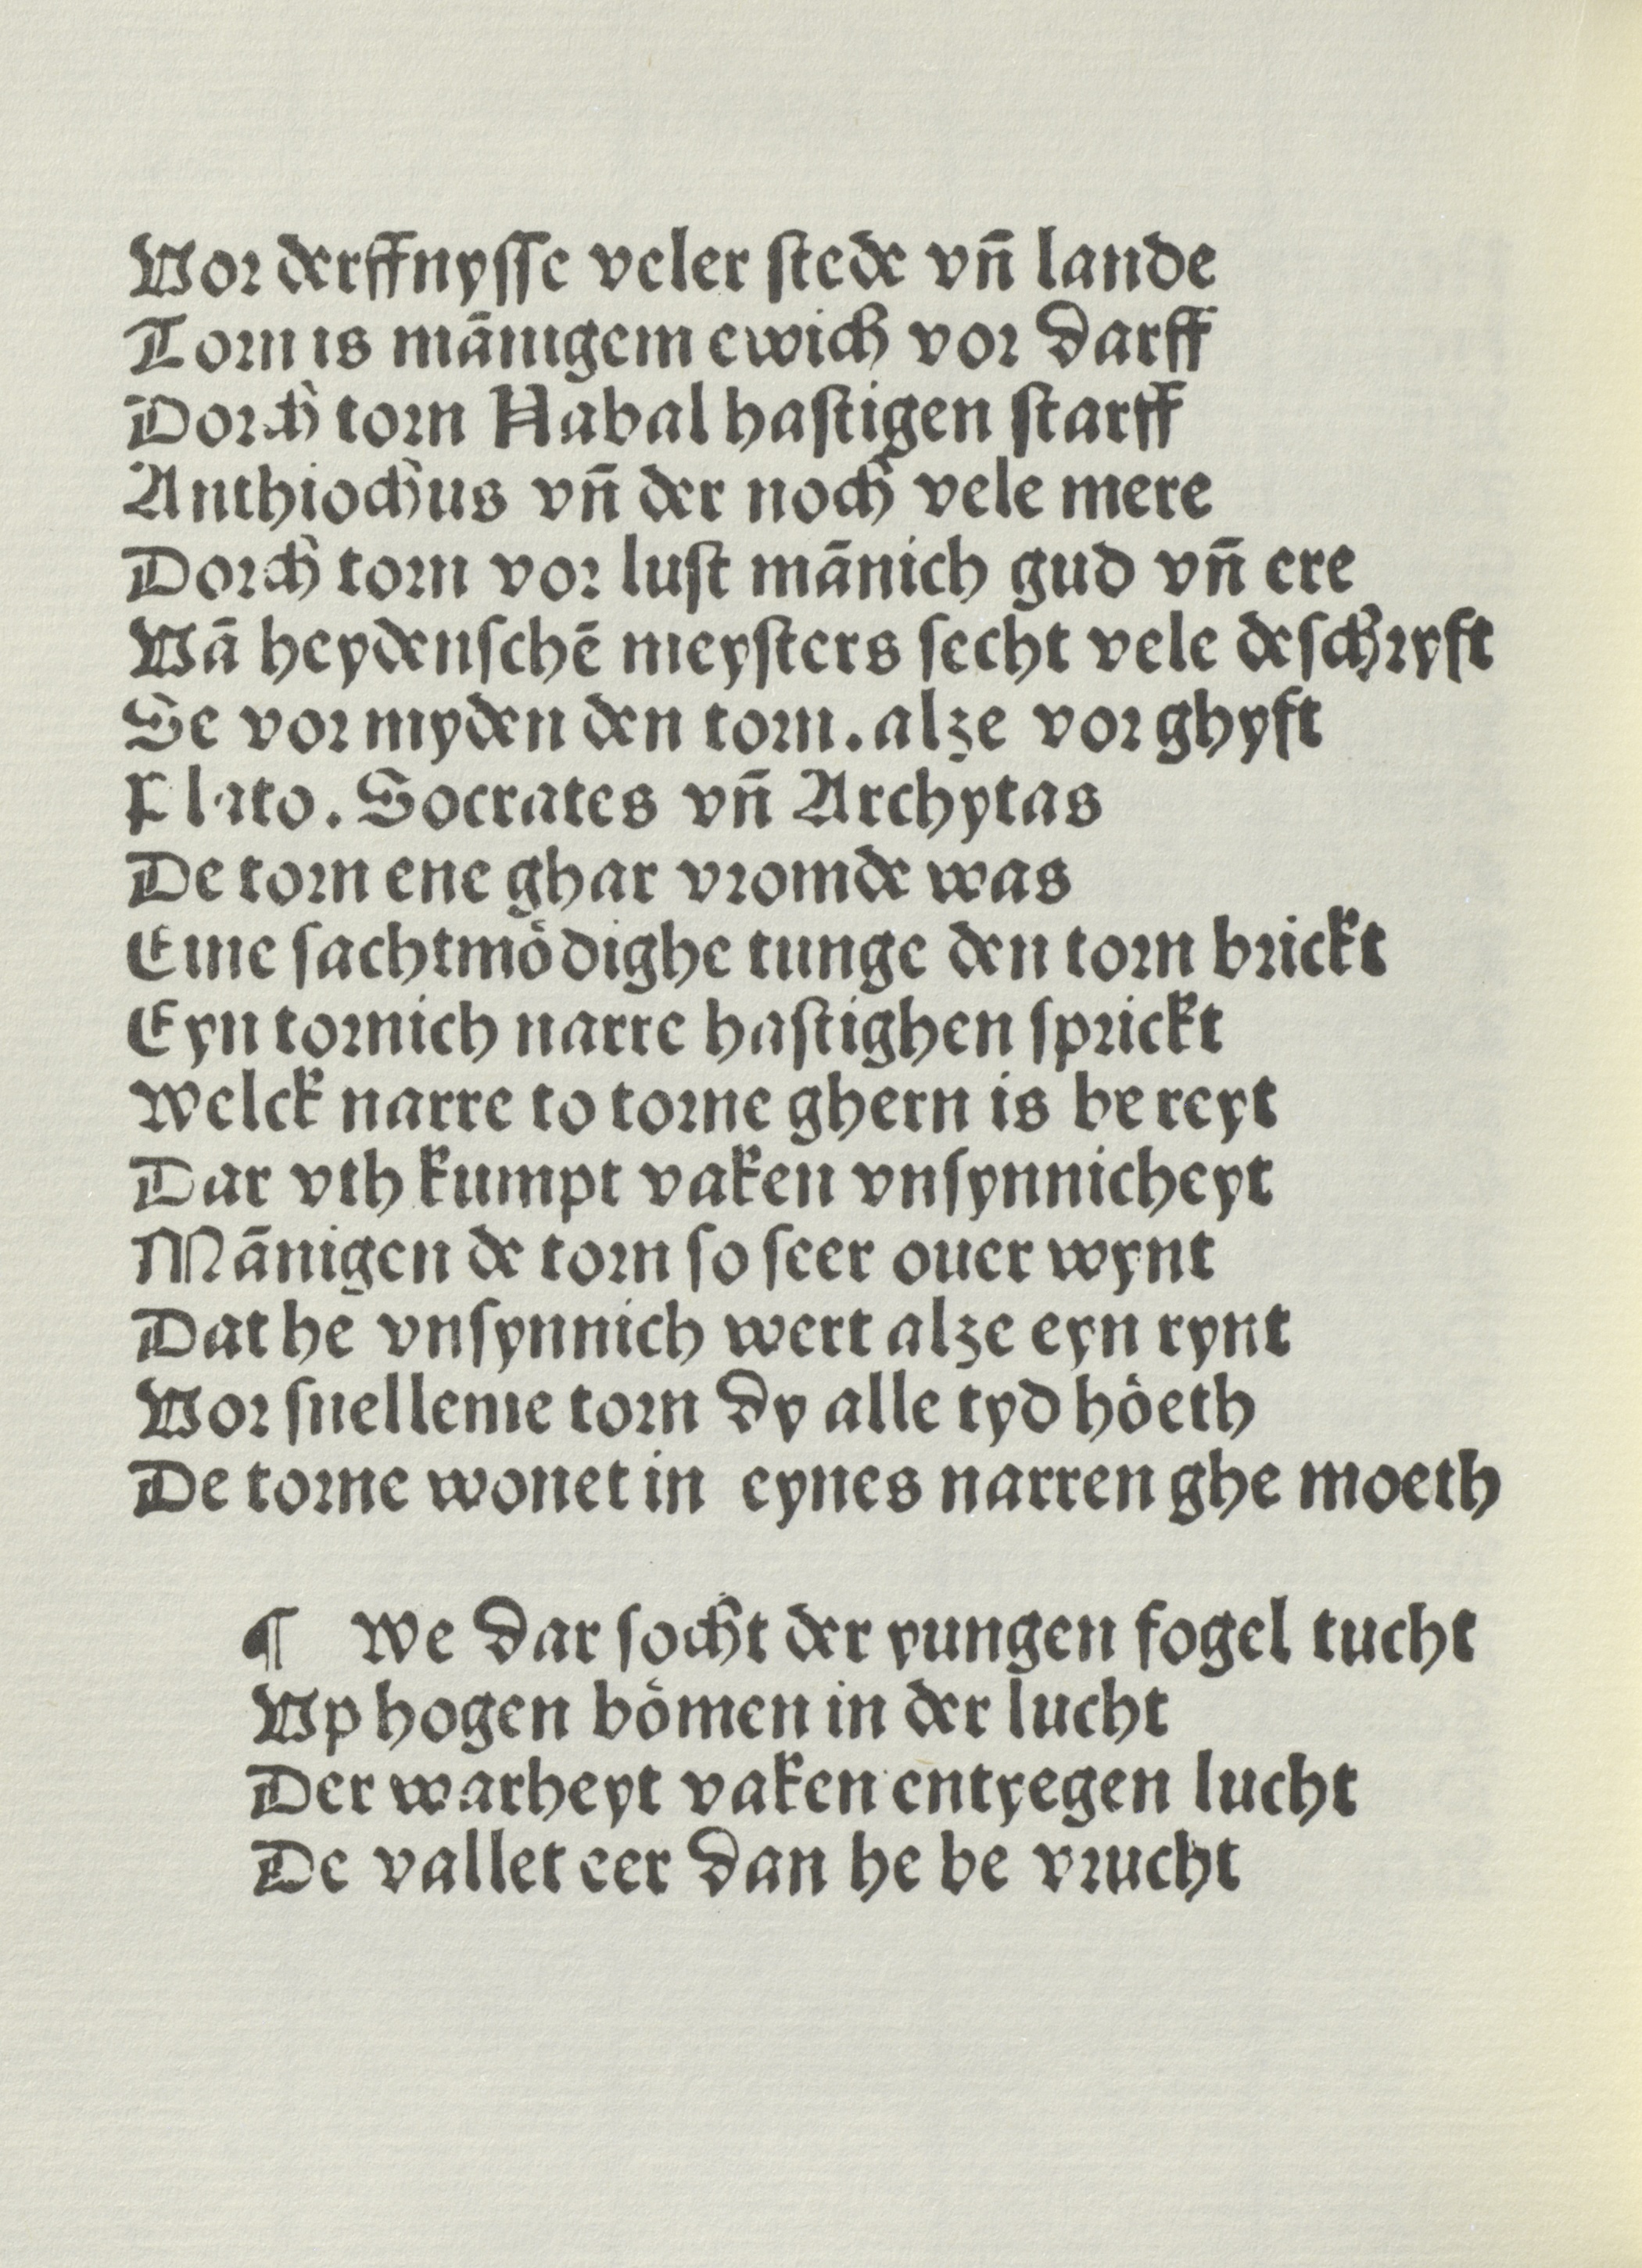 Vor derffnysse veler stede vn̄ lande
Torn is mānigem ewich vor darff
Dorch torn Nabal hastigen starff
Anthiochus vn̄ der noch vele mere
Dorch torn vor lust mānich gud vn̄ ere
Vā heydenschē meysters secht vele deschryft
Se vor myden den torn. alze vor ghyft
Plato. Socrates vn̄ Archytas
De torn ene ghar vromde was
Eine sachtmo̊dighe tunge den torn brickt
Eyn tornich narre hastighen sprickt
Welck narre to torne ghern is be reyt
Dar vth kumpt vaken vnsynnicheyt
Mānigen de torn so seer ouer wynt
Dat he vnsynnich wert alze eyn rynt
Vor snelleme torn dy alle tyd ho̊eth
De torne wonet in eynes narren ghe moeth
¶ We dar socht der yungen fogel tucht
Vp hogen bo̊men in der lucht
Der warheyt vaken entyegen lucht
De vallet eer dan he be vrucht